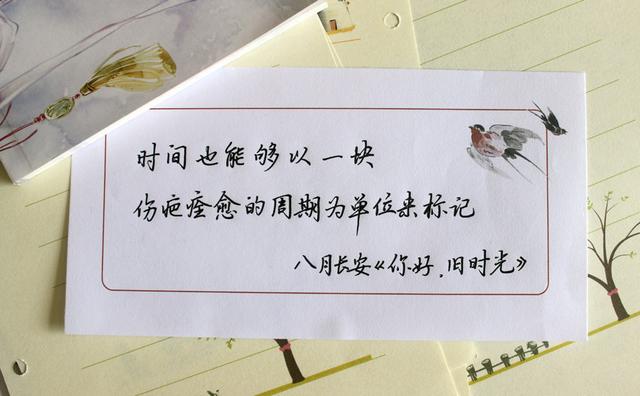 时间也能够以一块
伤疤痊愈的周期为单位来标记
八月长安《你好，旧时光》